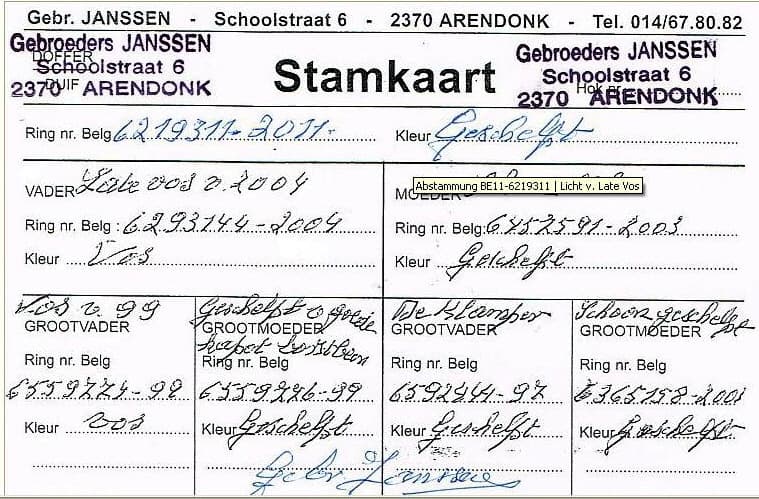 Gebr. JANSSEN - Schoolstraat 6 - 2370 ARENDONK - Tel. 014/67.80.82
Gebroeders JANSSEN
Schoolstraat 6
2370 ARENDONK
DOFFER
DUIF
Stamkaart
Gebroeders JANSSEN
Schoolstraat 6
2370 ARENDONK
Hok nr.
Ring nr. Belg 6219311-2011- Kleur Geschelpt
VADER Late vos v. 2004
MOEDER
Abstammung BE11-6219311 | Licht v. Late Vos
Ring nr. Belg : 6293144-2004 Ring nr. Belg: 6452591-2003
Kleur Vos Kleur Geschelpt
Vos v. 99
GROOTVADER
Ring nr. Belg
6559774-99
Kleur vos
Geschelpt v goede
GROOTMOEDER
kapot
Ring nr. Belg
6559776-99
Kleur Geschelpt
De Klamper
GROOTVADER
Ring nr. Belg
Kleur Geschelpt
Schoon geschelpt
GROOTMOEDER
Ring nr. Belg
6365158-2001
Kleur Geschelpt
Gebr Janssen